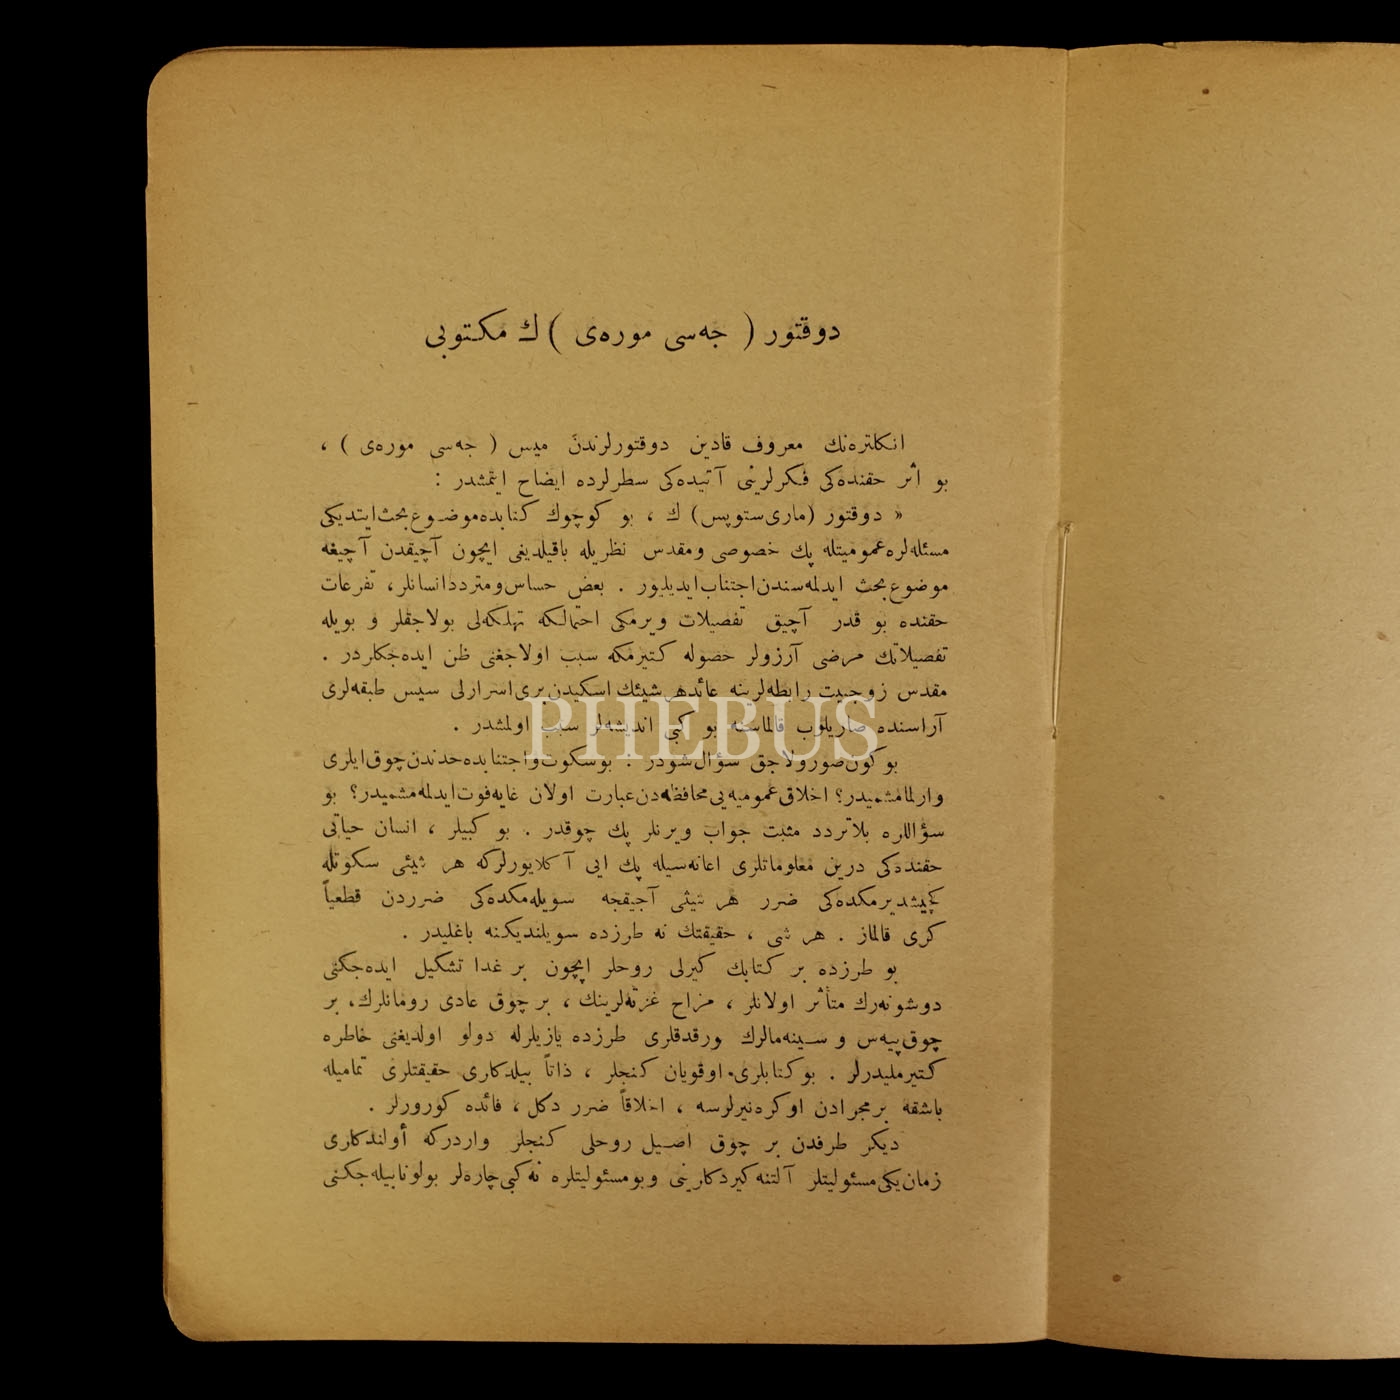 دوقتور ( جه‌سی موره‌ی ) ك مكتوبی
انكلتره‌نك معروف قادین دوقتورلرندن میس ( جه‌سی موره‌ی ) ،
بو اثر حقنده‌كی فكرلرینی آتیده‌كی سطرلرده ایضاح ایتمشدر :
« دوقتور (ماری ستوپس) ك ، بو كوچوك كتابده موضوع بحث ایتدیكی
مسئله‌لره عمومیتله پك خصوصی و مقدس نظریله باقیلدیغی ایچون آچیقدن آچیغه
موضوع بحث ایدلمه‌سندن اجتناب ایدیلیور . بعض حساس و متردد انسانلر ، تفرعات
حقنده بو قدر آچیق تفصیلات ویرمكی احتمالكه تهلكه‌لی بولاجقلر و بویله
تفصیلاتك مرضی آرزولر حصوله كتیرمكه سبب اولاجغنی ظن ایده‌جكلردر .
مقدس زوجیت رابطه‌لرینه عائد هر شیئك اسكیدن بری اسرارلی سیس طبقه‌لری
آراسنده صاریلوب قالماسنه بو كبی اندیشه‌لر سبب اولمشدر .
بو كون صورولاجق سؤال شودر : بو سكوت و اجتنابده حدندن چوق ایلری
وارلمامشمیدر؟ اخلاق عمومیه‌یی محافظه‌دن عبارت اولان غایه فوت ایدلمه‌مشمیدر؟ بو
سؤاللره بلاتردد مثبت جواب ویرنلر پك چوقدر . بو كبیلر ، انسان حیاتی
حقنده‌كی درین معلوماتلری اعانه‌سیله پك ایی آكلایورلركه هر شیئی سكوتله
كچیشدیرمكده‌كی ضرر هر شیئی آچیقجه سویله‌مكده‌كی ضرردن قطعیاً
كری قالماز . هر شی ، حقیقتك نه طرزده سویلندیكنه باغلیدر .
بو طرزده بر كتابك كیرلی روحلر ایچون بر غدا تشكیل ایده‌جكنی
دوشونه‌رك متأثر اولانلر ، مزاح غزته‌لرینك ، بر چوق عادی رومانلرك ، بر
چوق پیه‌س و سینه‌مالرك ورقدقلری طرزده یازیلرله دولو اولدیغنی خاطره
كتیرملیدرلر . بو كتابلری اوقویان كنجلر ، ذاتاً بیلدكلری حقیقتلری تمامیله
باشقه بر مجرادن اوكره‌نیرلرسه ، اخلاقاً ضرر دكل ، فائده كورورلر .
دیكر طرفدن بر چوق اصیل روحلی كنجلر واردركه أولندكلری
زمان یكی مسئولیتلر آلتنه كیردكلرینی و بو مسئولیتلره نه كبی چاره‌لر بولونابیله‌جكنی
PHEBUS